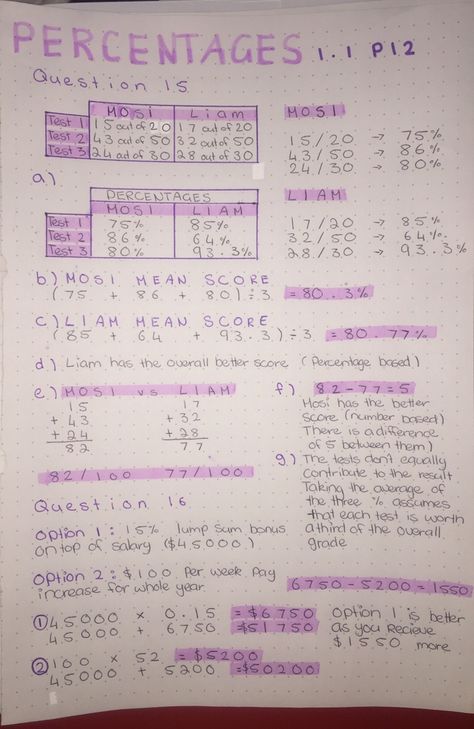 PERCENTAGES 1.1 P12
Question 15
MOSI Liam
Test 1 15 out of 20 17 out of 20
Test 2 43 out of 50 32 out of 50
Test 3 24 out of 30 28 out of 30
MOSI
15/20 → 75%
43/50 → 86%
24/30 → 80%
a)
PERCENTAGES
MOSI LIAM
Test 1 75% 85%
Test 2 86% 64%
Test 3 80% 93.3%
LIAM
17/20 → 85%
32/50 → 64%
28/30 → 93.3%
b) MOSI MEAN SCORE
(75 + 86 + 80) ÷ 3 = 80.3%
c) LIAM MEAN SCORE
(85 + 64 + 93.3) ÷ 3 = 80.77%
d) Liam has the overall better score (Percentage based)
e) MOSI vs LIAM
15 17
+ 43 + 32
+ 24 + 28
82 77
82/100 77/100
f) 82-77=5
Mosi has the better
score (number based)
There is a difference
of 5 between them)
g) The tests don't equally
contribute to the result
Taking the average of
the three % assumes
that each test is worth
a third of the overall
grade
Question 16
Option 1: 15% lump sum bonus
on top of salary ($45000)
Option 2: $100 Per week Pay
increase for whole year
6750-5200=1550
① 45000 × 0.15 = $6750
45000 + 6750 = $51750
Option 1 is better
as you Recieve
$1550 more
② 100 × 52 = $5200
45000 + 5200 = $50200